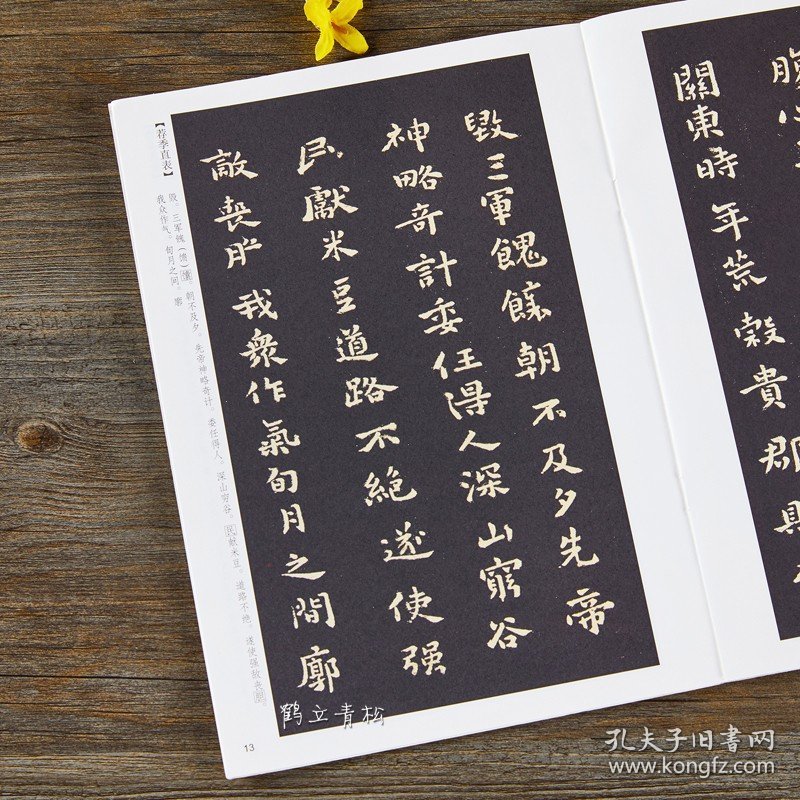 關東時年荒穀貴郡
毀三軍餽饟朝不及夕先帝
神略奇計委任得人深山窮谷
民獻米豆道路不絕遂使强
敵喪膽我衆作氣旬月之間廓
【荐季直表】
毁。三军餽(馈)饟。朝不及夕。先帝神略奇计。委任得人。深山穷谷。民献米豆。道路不绝。遂使强敌丧胆。
我众作气。旬月之间。廓
13
鹤立青松
孔夫子旧书网
www.kongfz.com